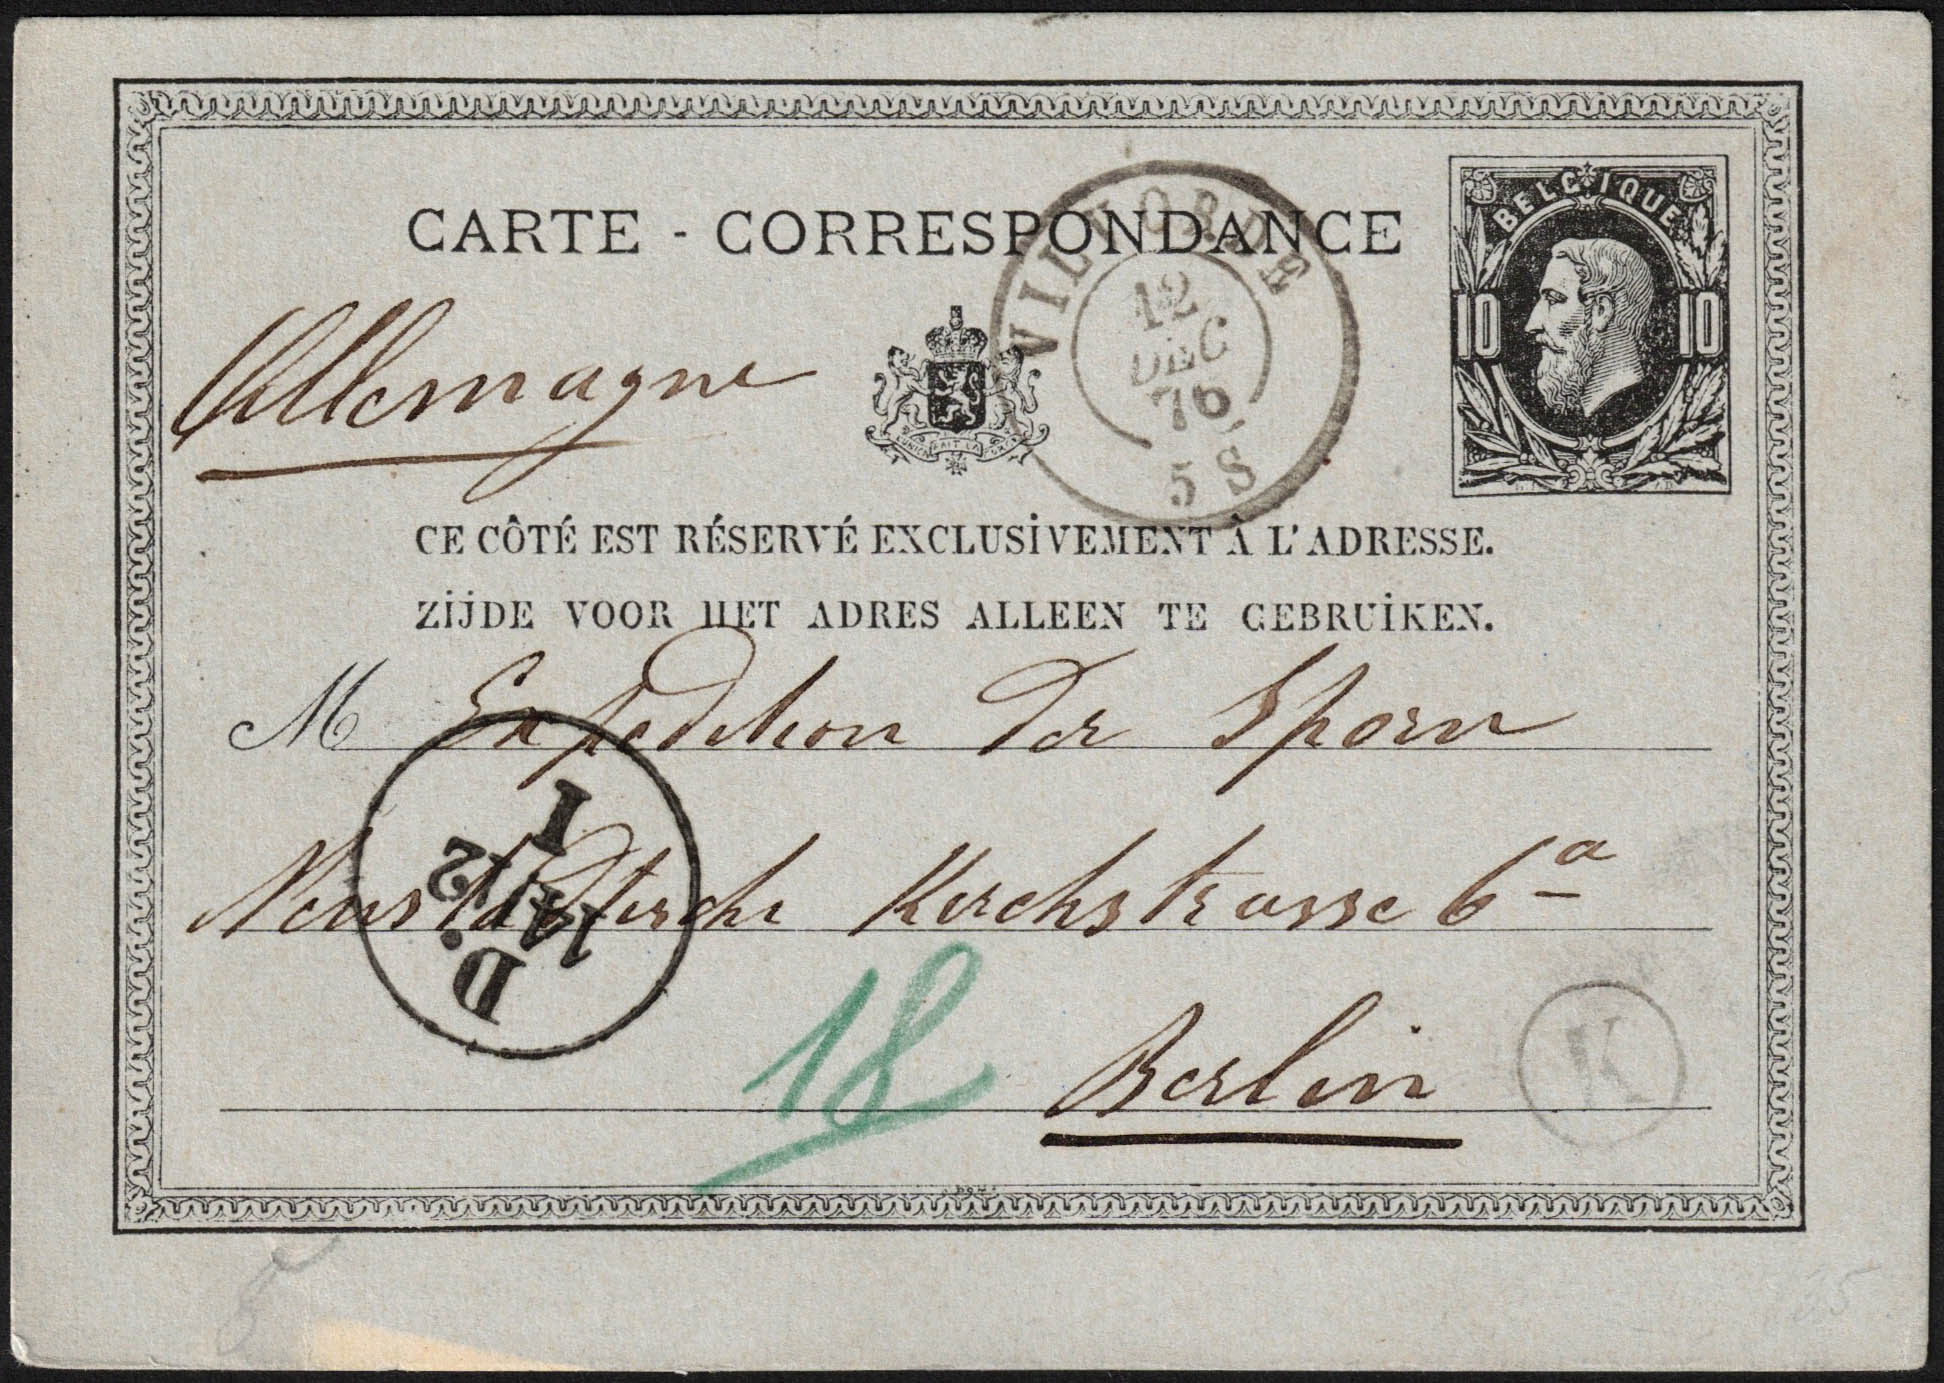 CARTE - CORRESPONDANCE
BELGIQUE
10 10
VILVORDE
12
DEC
76
5 S
Allemagne
L'UNION FAIT LA FORCE
CE CÔTÉ EST RÉSERVÉ EXCLUSIVEMENT À L'ADRESSE.
ZIJDE VOOR HET ADRES ALLEEN TE GEBRUIKEN.
M Expedition der Sporn
I
14/12
D.
Neustadtische Kirchstrasse 6a
18
Berlin
K
25